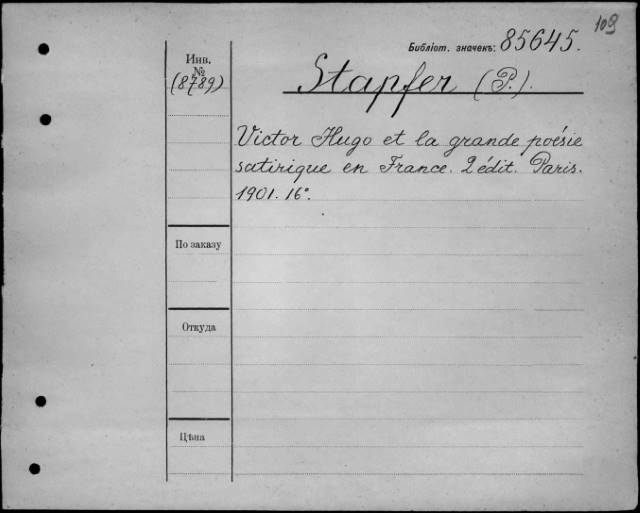 109
Библіот. значекъ: 85645.
Инв.
№
(8789)
Stapfer (P.).
Victor Hugo et la grande poésie
satirique en France. 2 édit. Paris.
1901. 16°.
По заказу
Откуда
Цѣна